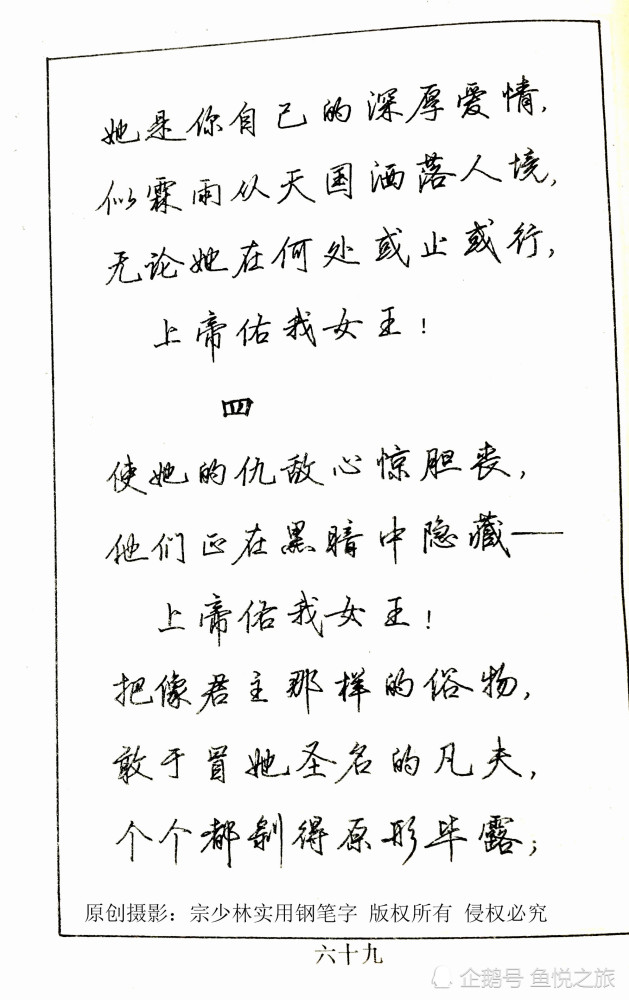 她是你自己的深厚爱情，
似霖雨从天国洒落人境，
无论她在何处或止或行，
上帝佑我女王！
四
使她的仇敌心惊胆丧，
他们正在黑暗中隐藏——
上帝佑我女王！
把像君主那样的俗物，
敢于冒她圣名的凡夫，
个个都剥得原形毕露；
原创摄影：宗少林实用钢笔字 版权所有 侵权必究
六十九
企鹅号 鱼悦之旅